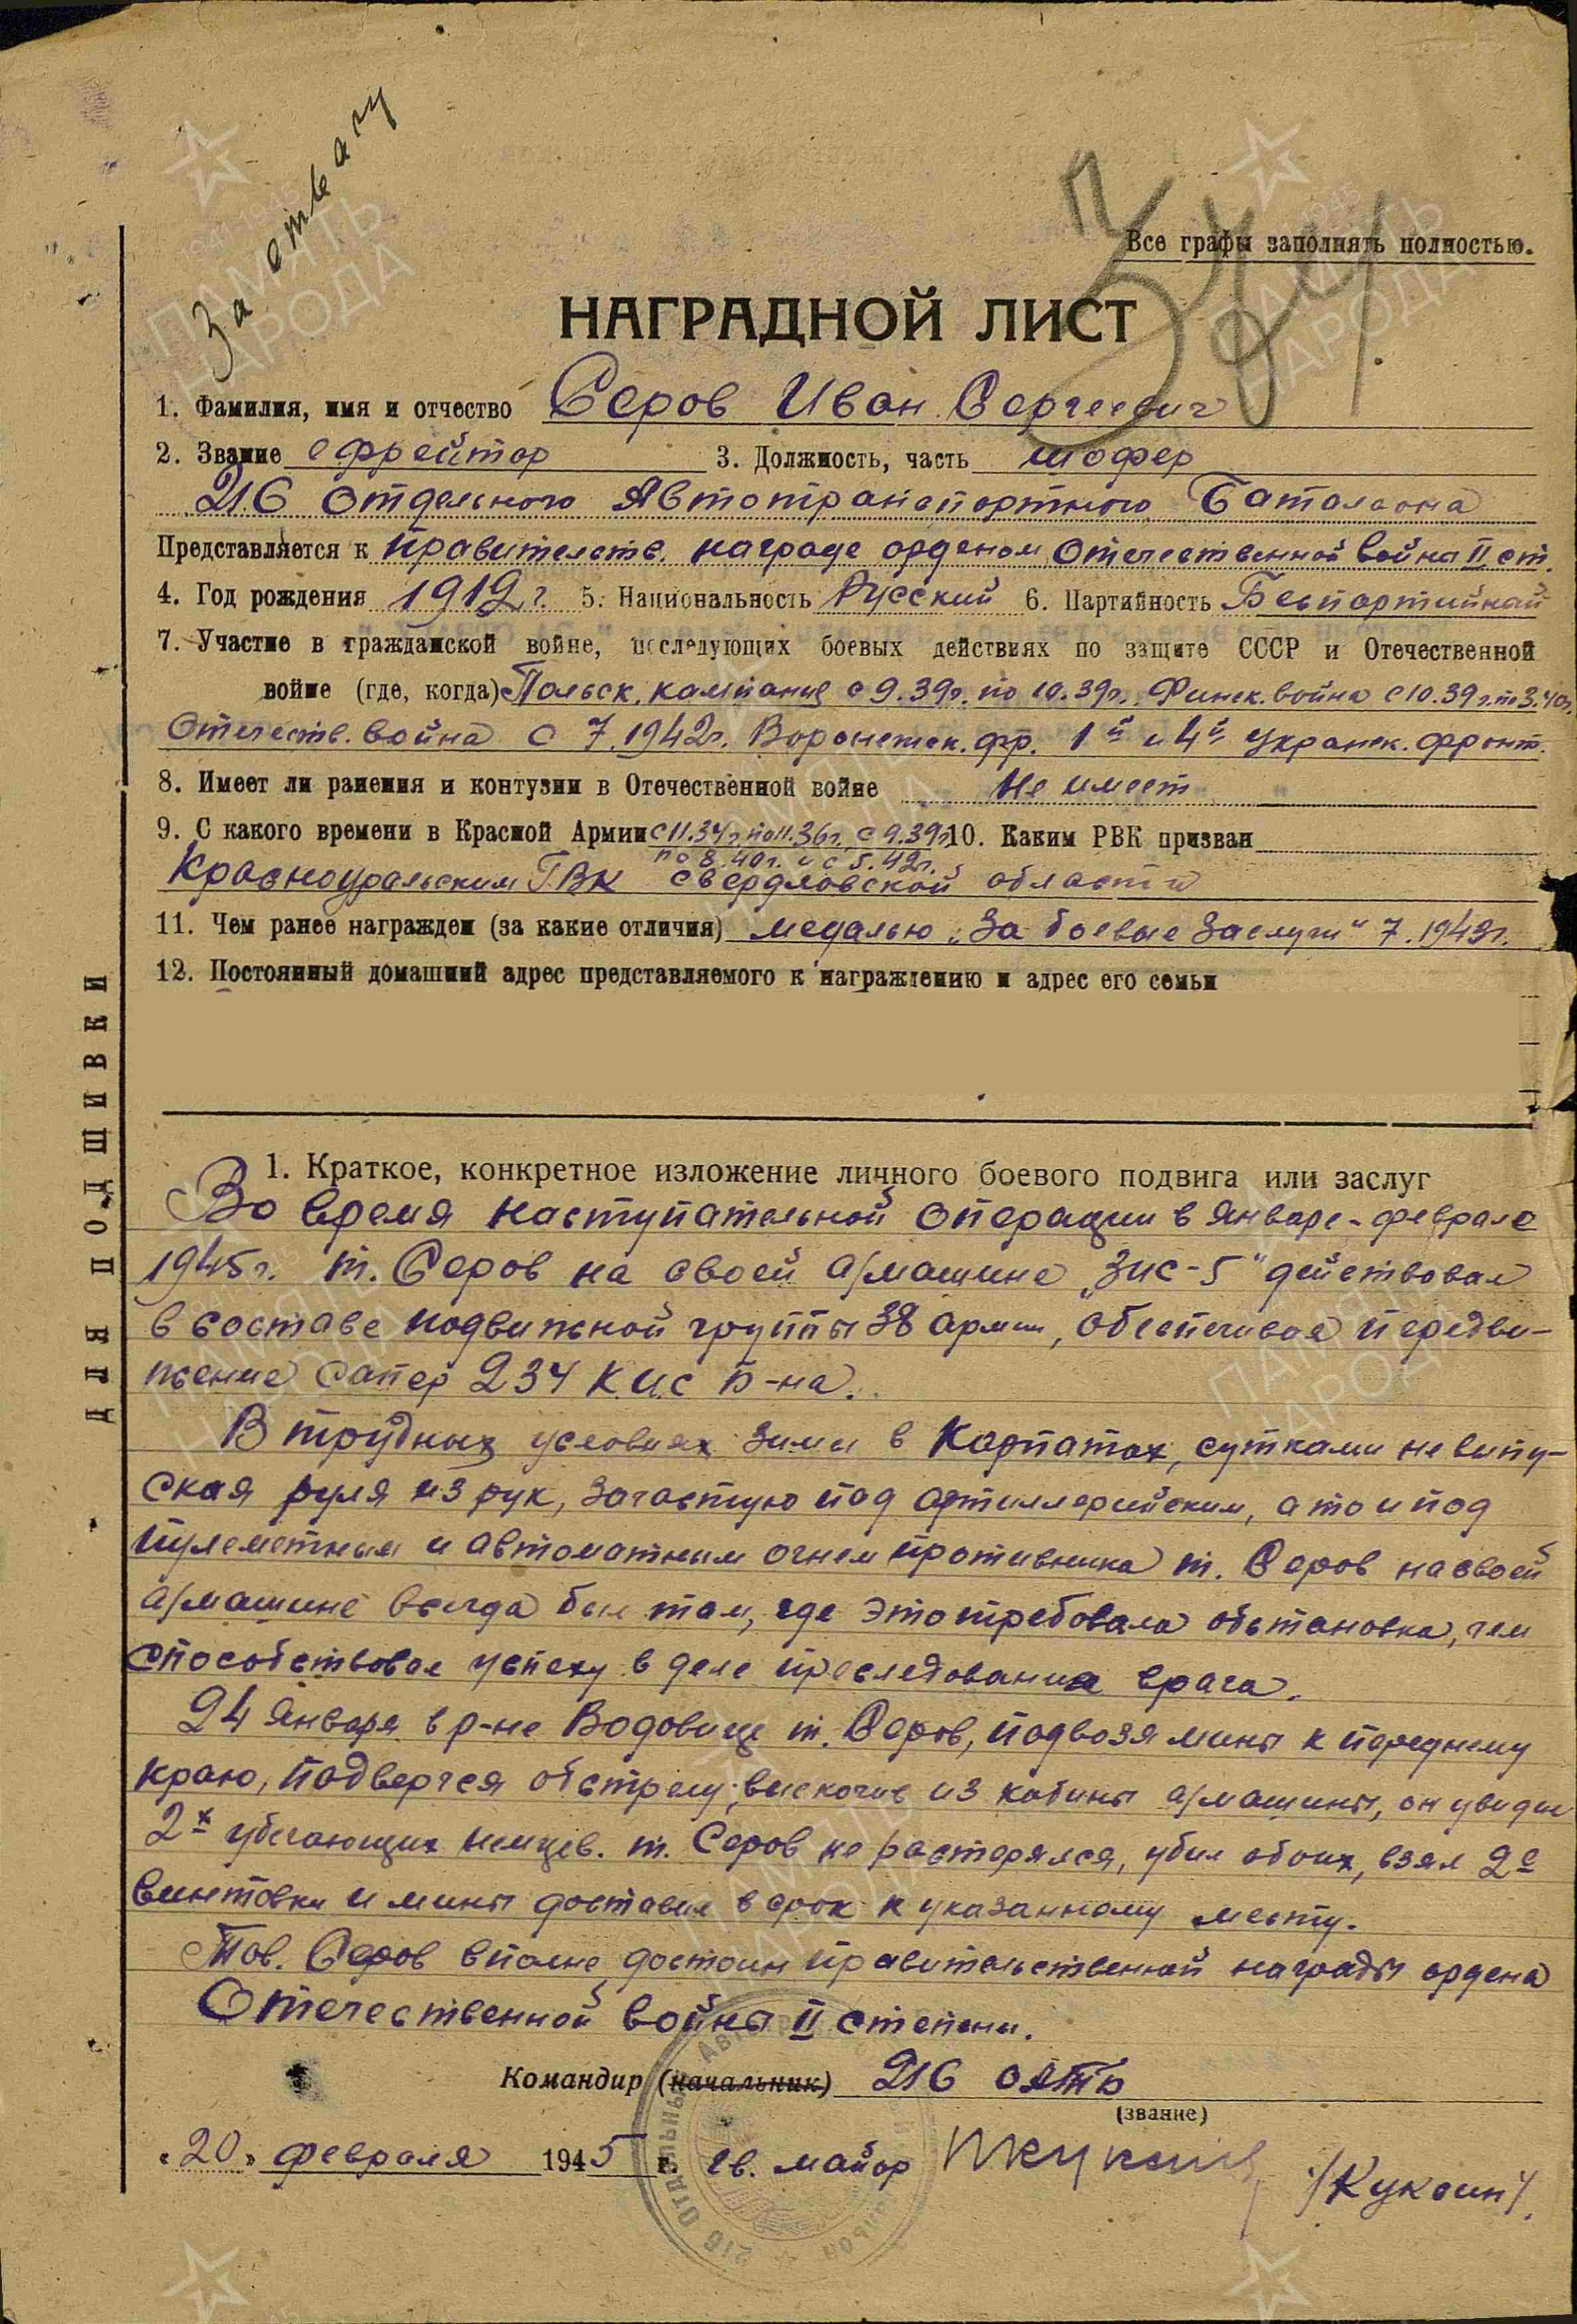 За отвагу
Все графы заполнять полностью.
НАГРАДНОЙ ЛИСТ
1. Фамилия, имя и отчество Серов Иван Сергеевич
2. Звание ефрейтор 3. Должность, часть шофер
216 отдельного Автотранспортного Баталиона
Представляется к правительств. награде орденом Отечественной Война II ст.
4. Год рождения 1912 г. 5. Национальность Русский 6. Партийность Беспартийный
7. Участие в гражданской войне, последующих боевых действиях по защите СССР и Отечественной
войне (где, когда) Польск. кампания с 9.39г. по 10.39г. Финск. война с 10.39 г. по 3.40г.
Отечеств. война с 7.1942г. Воронежск. фр. 1й и 4й Украинск. фронт.
8. Имеет ли ранения и контузии в Отечественной войне Не имеет
9. С какого времени в Красной Армии с 11.34г. по 11.36г., с 9.39г. 10. Каким РВК призван
по 8.40г. и с 5.42г.
Красноуральским ГВК Свердловской области
11. Чем ранее награжден (за какие отличия) медалью „За боевые заслуги“ 7.1943г.
12. Постоянный домашний адрес представляемого к награждению и адрес его семьи
ДЛЯ ПОДШИВКИ
1. Краткое, конкретное изложение личного боевого подвига или заслуг
Во время наступательной операции в январе-феврале
1945г. т. Серов на своей а/машине „ЗИС-5“ действовал
в составе подвижной группы 38 армии, обеспечивая передви-
жение сапер 234 К.И.С. Б-на.
В трудных условиях зимы в Карпатах, сутками не випу-
ская руля из рук, зачастую под артиллерийским, а то и под
пулеметным и автоматным огнем противника т. Серов на своей
а/машине всегда был там, где это требовала обстановка, чем
способствовал успеху в деле преследования врага.
24 января в р-не Водовице т. Серов, подвозя мины к переднему
краю, подвергся обстрелу, выскочив из кабины а/машины, он увидел
2х убегающих немцев. т. Серов не растерялся, убил обоих, взял 2е
винтовки и мины доставил в срок к указанному месту.
Тов. Серов вполне достоин правительственной награды ордена
Отечественной войны II степени.
Командир (начальник) 216 ОАТБ
(звание)
„20“ февраля 1945 г. гв. майор /Куксин/.
ПАМЯТЬ НАРОДА
1941-1945